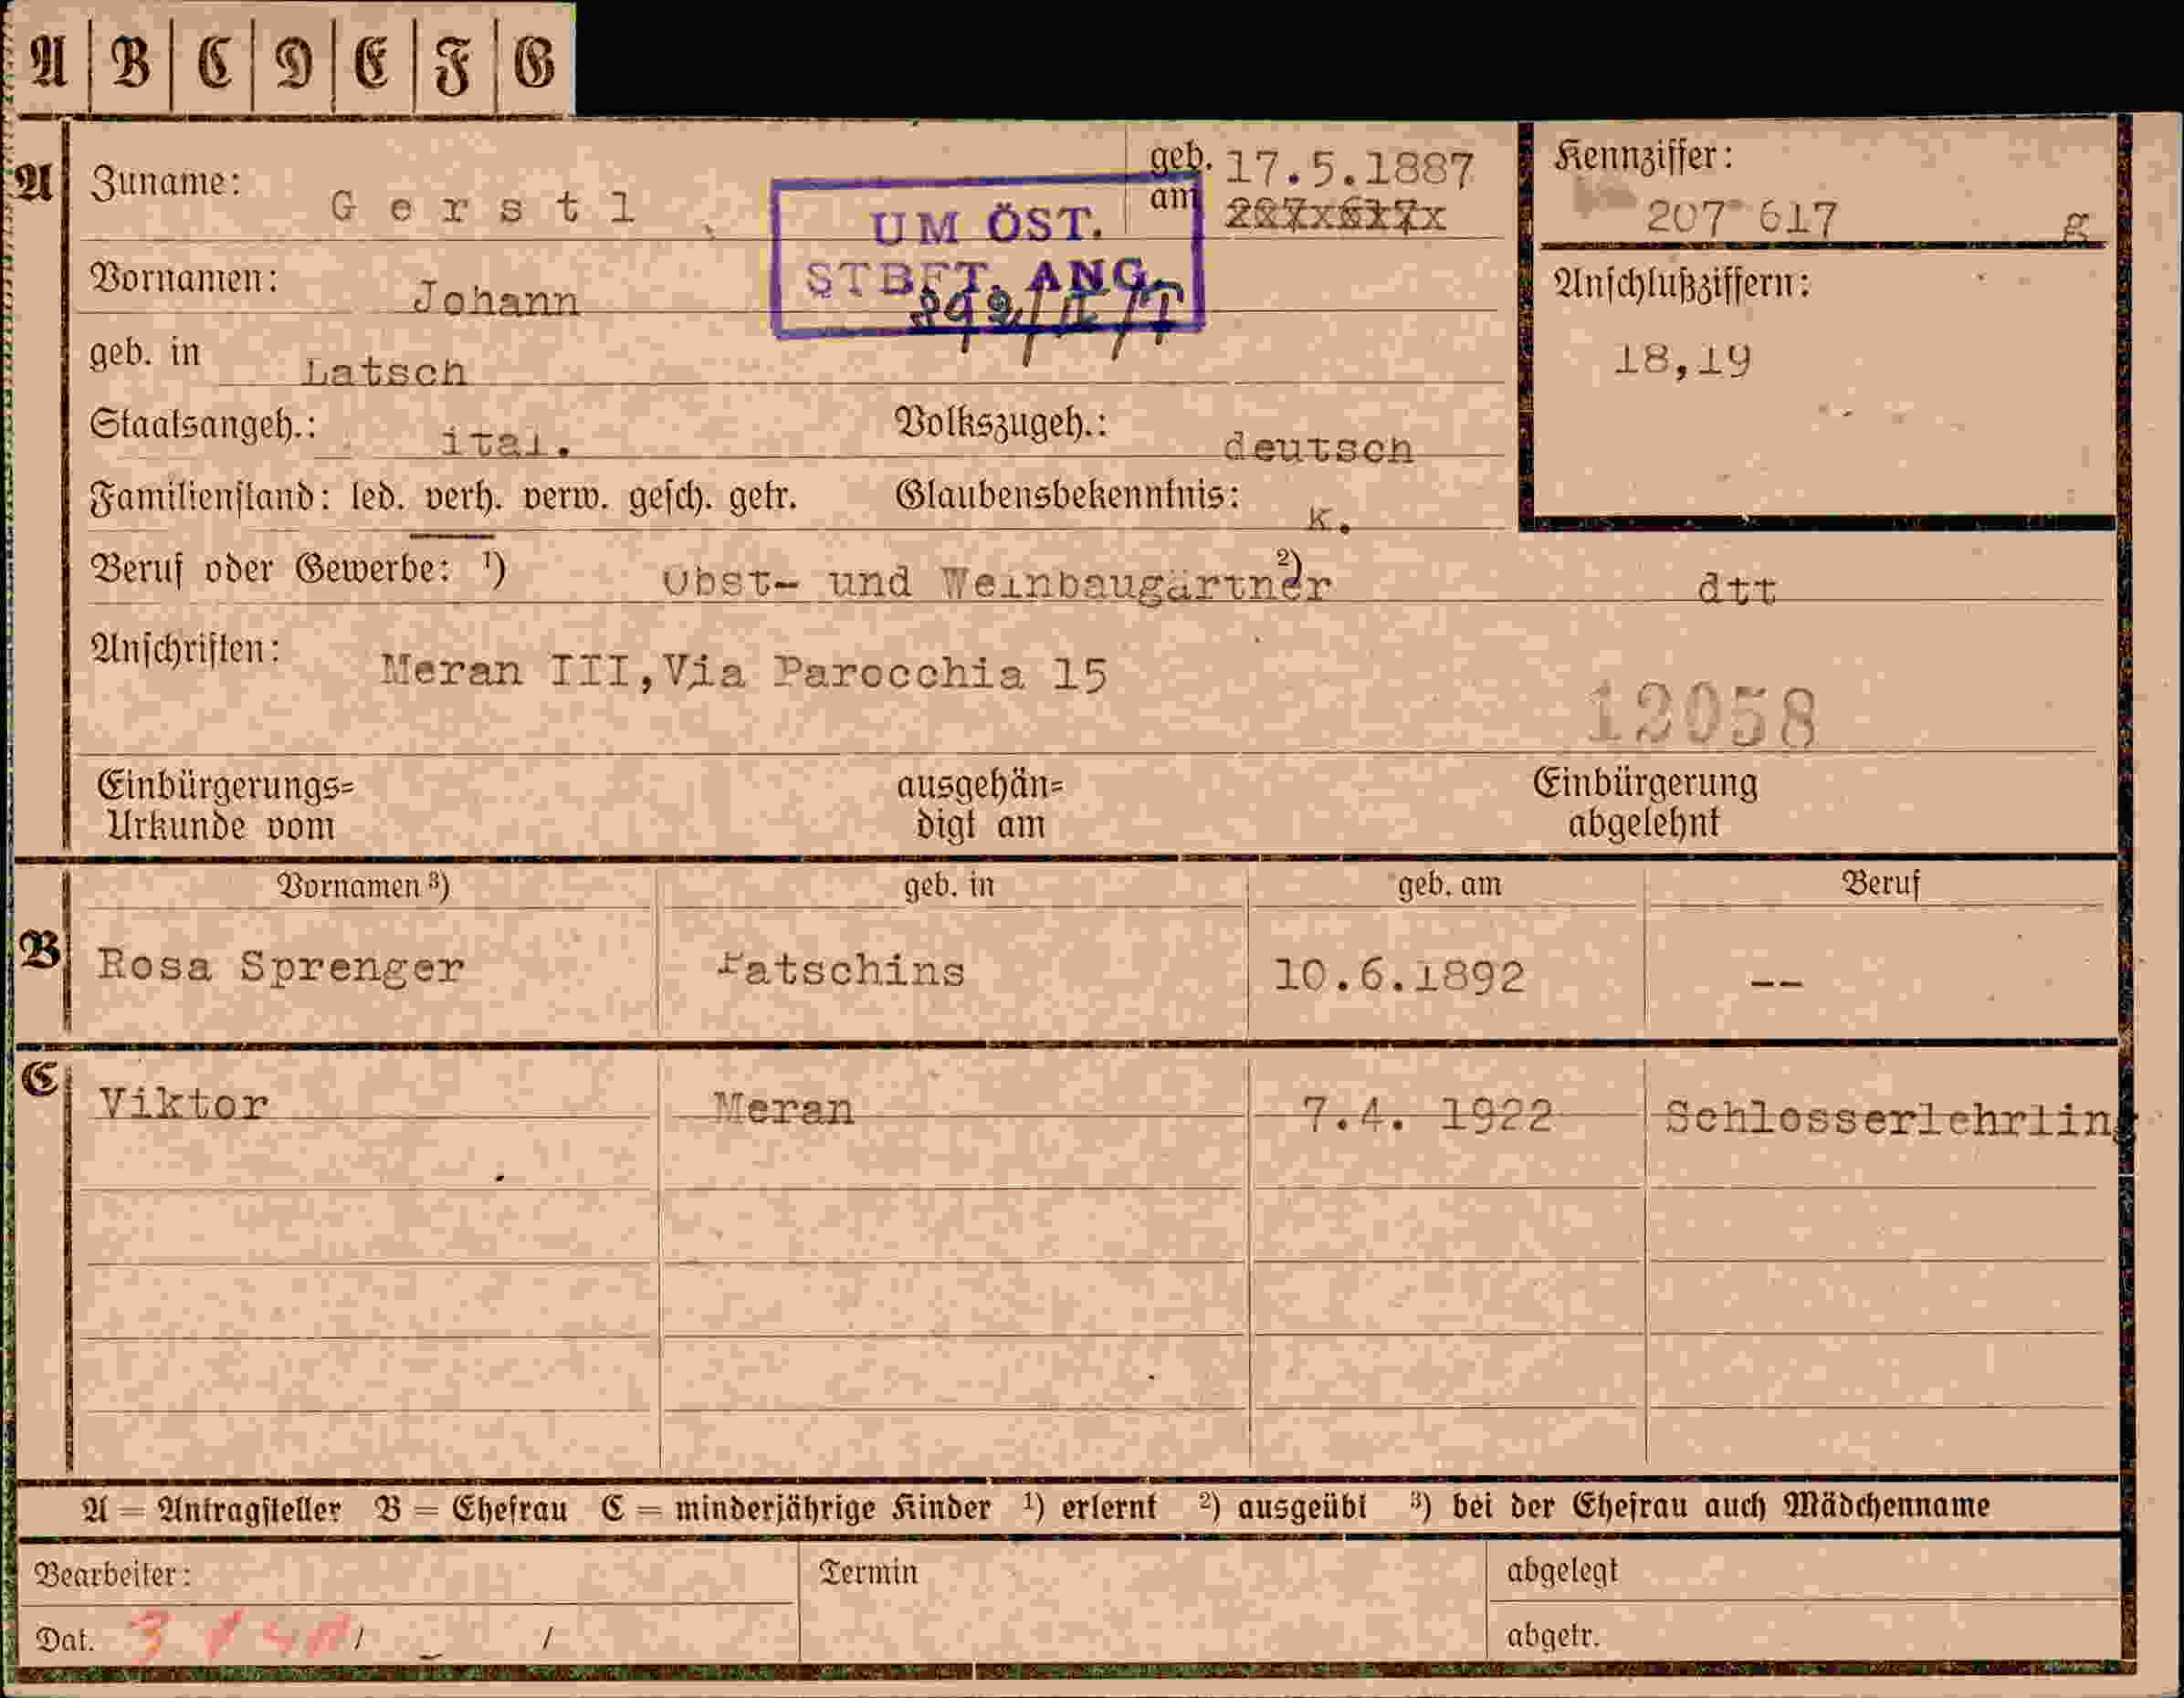 A B C D E F G
A Zuname: Gerstl geb. am 17.5.1887
Kennziffer: 207 617 g
UM ÖST.
STBFT. ANG.
Vornamen: Johann
Anschlußziffern:
18,19
geb. in Latsch
Staatsangeh.: ital. Volkszugeh.: deutsch
Familienstand: led. verh. verw. gesch. getr. Glaubensbekenntnis: k.
Beruf oder Gewerbe: 1) Obst- und Weinbaugärtner 2) dtt
Anschriften: Meran III, Via Parocchia 15
12058
Einbürgerungs= ausgehän= Einbürgerung
Urkunde vom digt am abgelehnt
Vornamen 3) geb. in geb. am Beruf
B Rosa Sprenger Patschins 10.6.1892 --
C Viktor Meran 7.4. 1922 Schlosserlehrling
A = Antragsteller B = Ehefrau C = minderjährige Kinder 1) erlernt 2) ausgeübt 3) bei der Ehefrau auch Mädchenname
Bearbeiter: Termin abgelegt
Dat. / / abgetr.